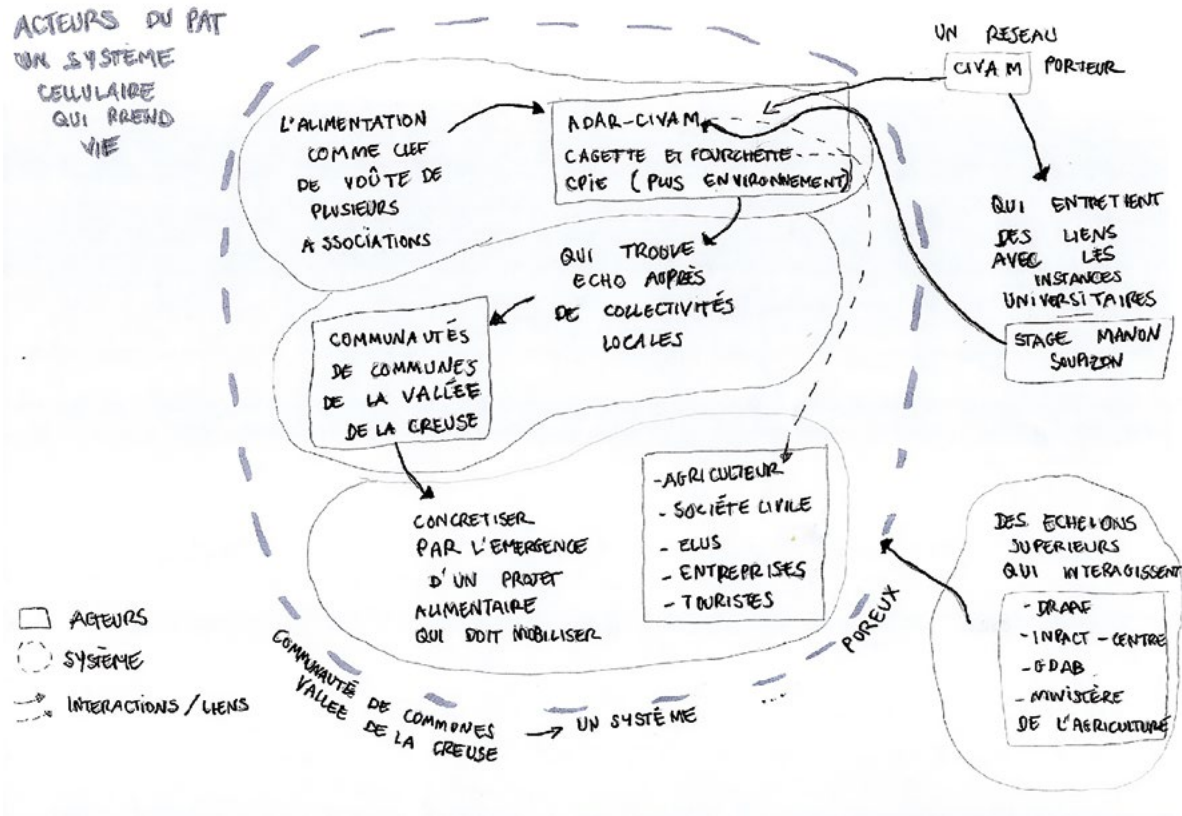 ACTEURS DU PAT
UN SYSTÈME
CELLULAIRE
QUI PREND
VIE
UN RESEAU
CIVAM PORTEUR
L'ALIMENTATION
COMME CLEF
DE VOÛTE DE
PLUSIEURS
ASSOCIATIONS
ADAR-CIVAM
CAGETTE ET FOURCHETTE
CPIE (PLUS ENVIRONNEMENT)
QUI ENTRETIENT
DES LIENS
AVEC LES
INSTANCES
UNIVERSITAIRES
STAGE MANON
QUI TROUVE
ECHO AUPRÈS
DE COLLECTIVITÉS
LOCALES
COMMUNAUTÉS
DE COMMUNES
DE LA VALLÉE
DE LA CREUSE
CONCRETISER
PAR L'EMERGENCE
D'UN PROJET
ALIMENTAIRE
QUI DOIT MOBILISER
-AGRICULTEUR
- SOCIÉTE CIVILE
- ELUS
- ENTREPRISES
- TOURISTES
DES ECHELONS
SUPERIEURS
QUI INTERAGISSENT
- DRAAF
- INPACT - CENTRE
- GDAB
- MINISTÈRE
DE L'AGRICULTURE
POREUX
ACTEURS
SYSTÈME
INTERACTIONS / LIENS
COMMUNAUTÉ DE COMMUNES
VALLEE DE LA CREUSE
→ UN SYSTÉME